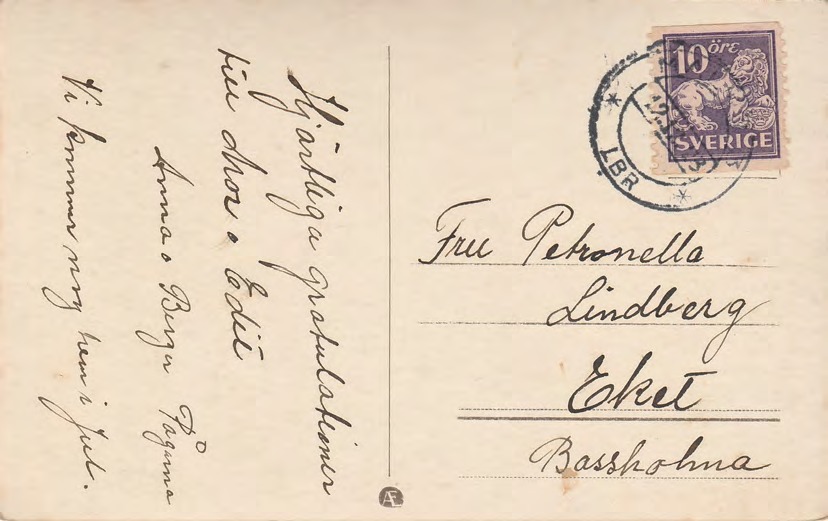 Hjärtliga gratulationer
till Mor o Edit
Anna o Berger
Vi kommer nog hem i Jul.
10 öre
SVERIGE
LBR
Fru Petronella
Lindberg
Eket
Bassholma
Æ